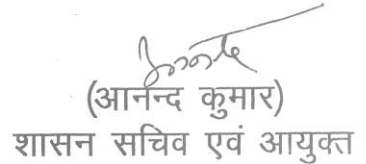 (आनन्द कुमार)
शासन सचिव एवं आयुक्त